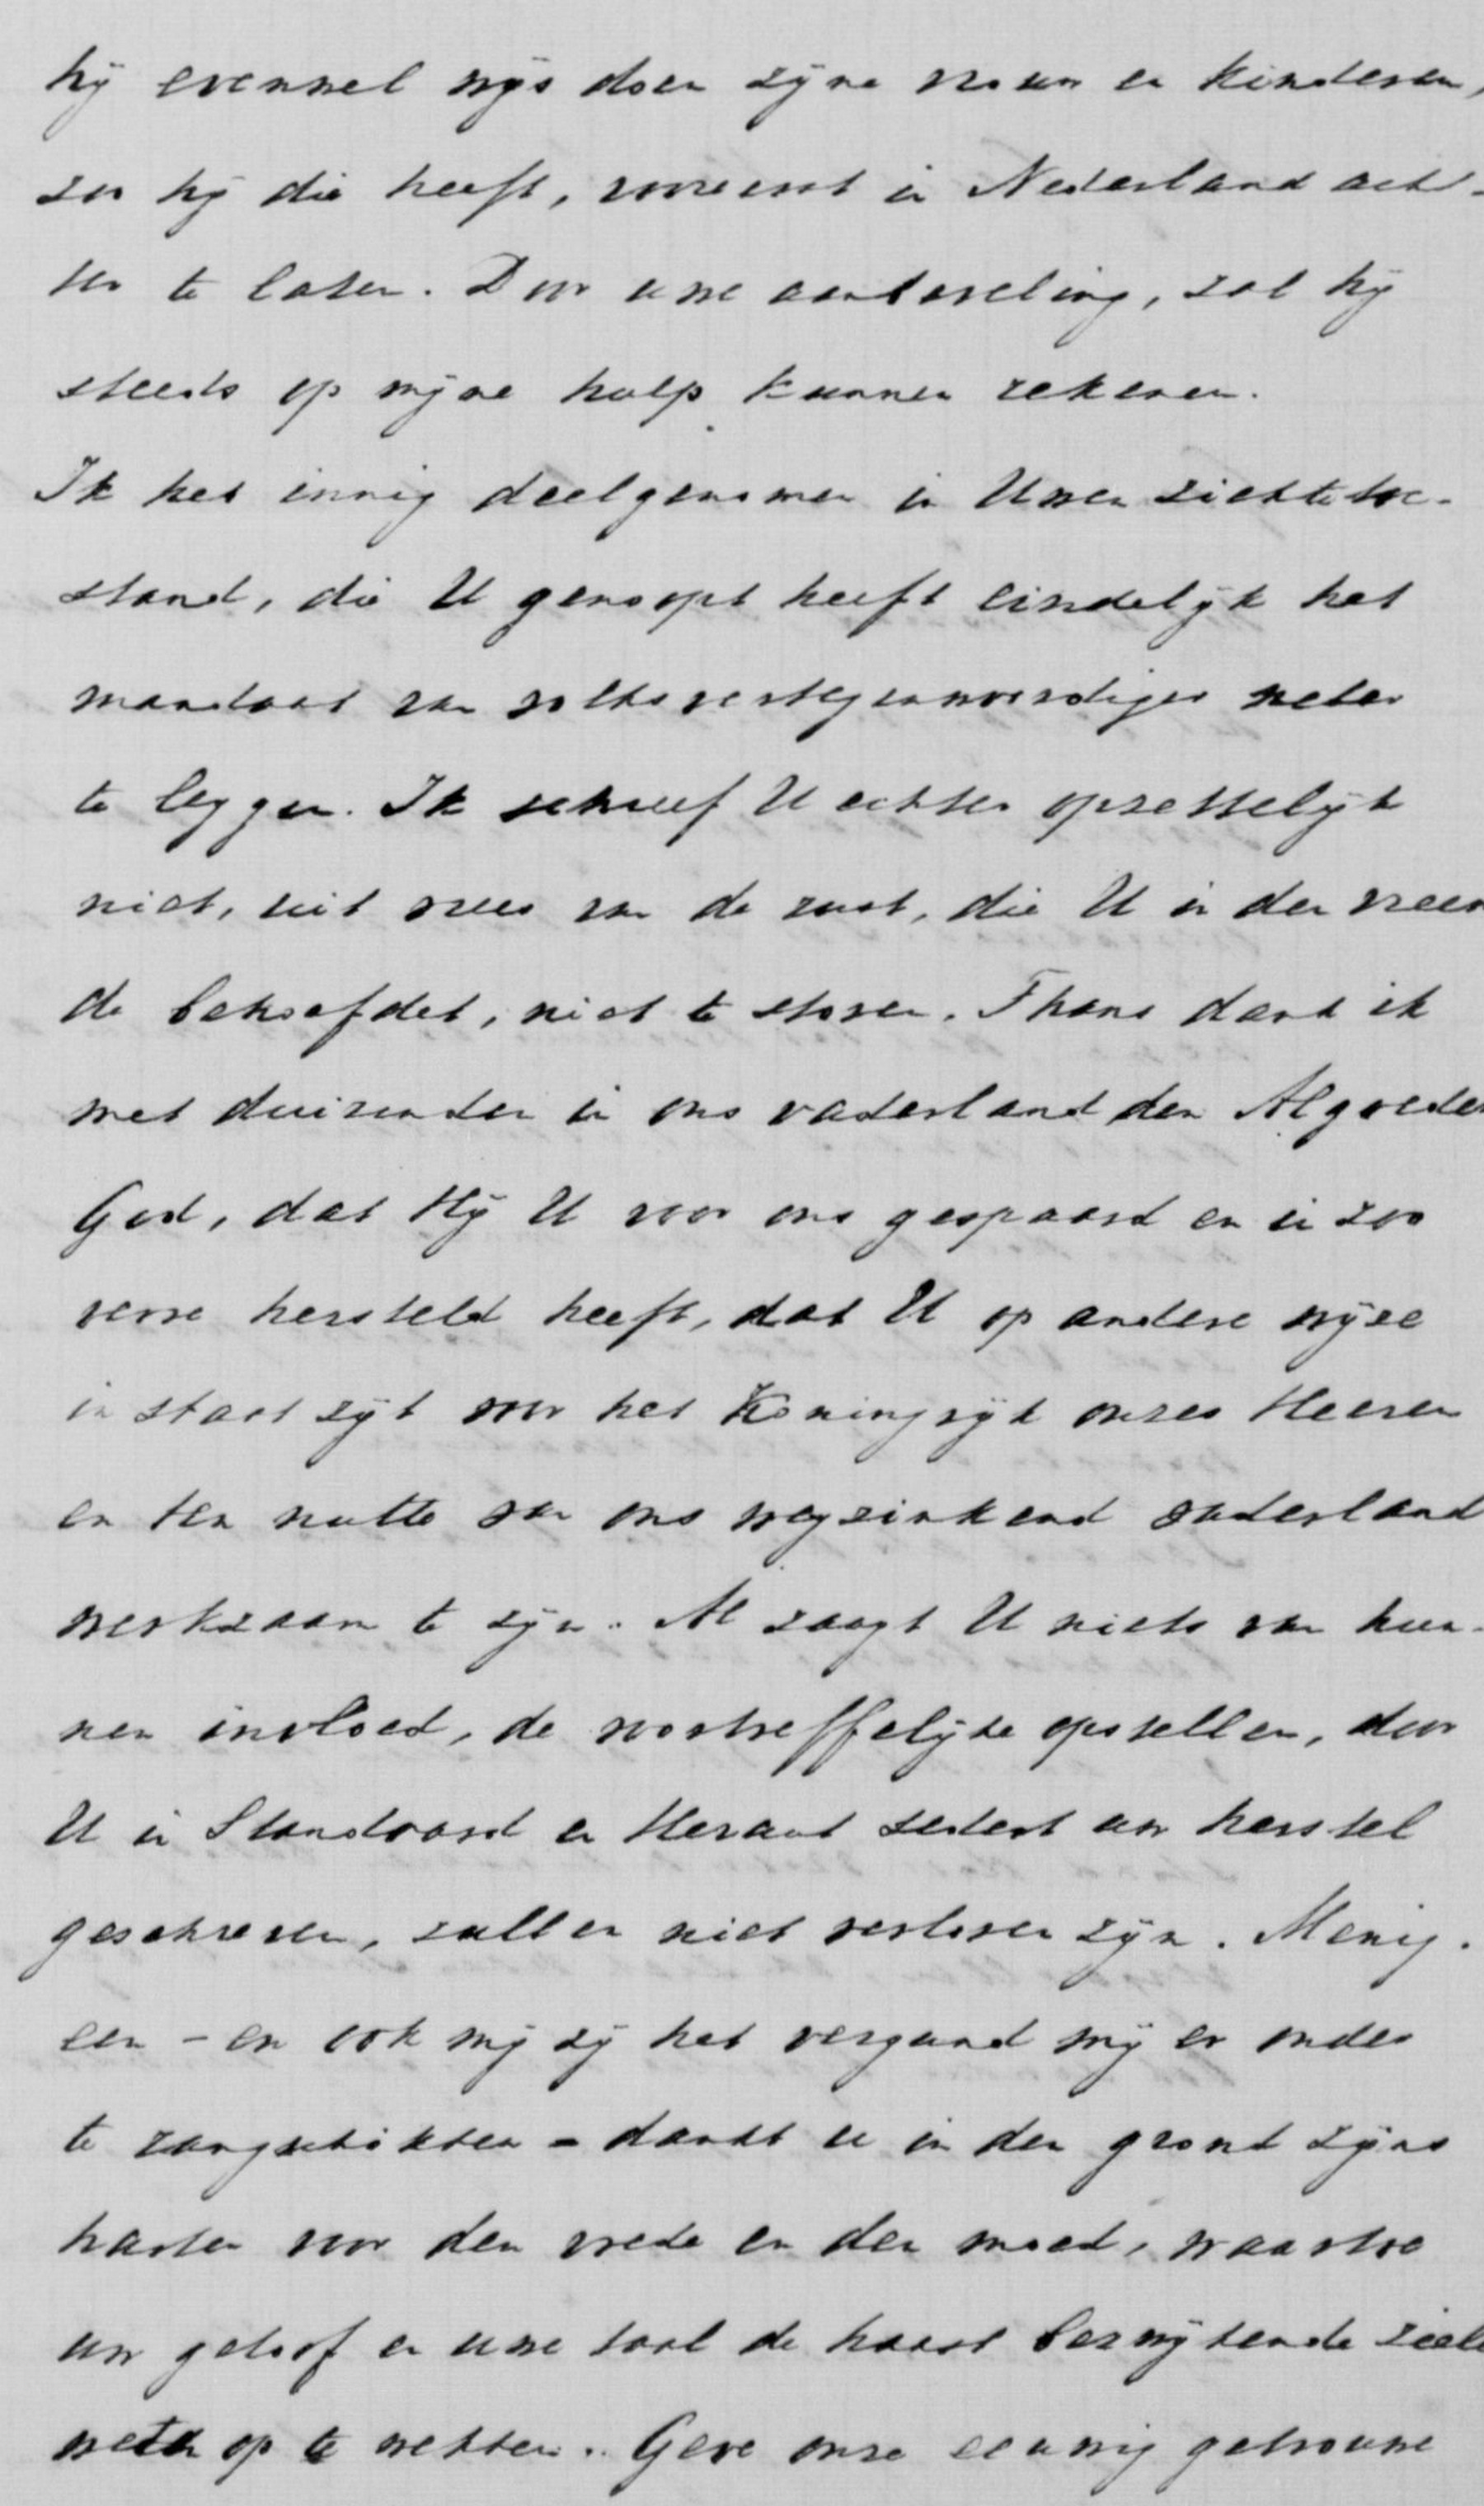 hij evenwel wijs doen zijne vrouw en kinderen,
zoo hij die heeft, vooreerst in Nederland ach-
ter te laten. Door uwe aanbeveling, zal hij
steeds op mijne hulp kunnen rekenen.
Ik heb innig deelgenomen in Uwen ziektetoe-
stand, die U genoopt heeft eindelijk het
mandaat van volksvertegenwoordiger neder
te leggen. Ik schreef U echter opzettelijk
niet, uit vrees van de rust, die U in den vreem
de behoefdet, niet te storen. Thans dank ik
met duizenden in ons vaderland den Algoeden
God, dat Hij U voor ons gespaard en in zoo
verre hersteld heeft, dat U op andere wijze
in staat zijt voor het Koningrijk onzes Heeren
en ten nutte van ons wegzinkend vaderland
werkzaam te zijn. Al zaagt U niets van hun-
nen invloed, de voortreffelijke opstellen, door
U in Standaard en Heraut sedert uw herstel
geschreven, zullen niet verloren zijn. Menig-
een - en ook mij zij het vergund mij er onder
te rangschikken - dankt u in den grond zijns
harten voor den vrede en den moed, waartoe
uw geloof en uwe taal de haast bezwijkende ziel
weder op te wekken. Geve onze eeuwig getrouwe